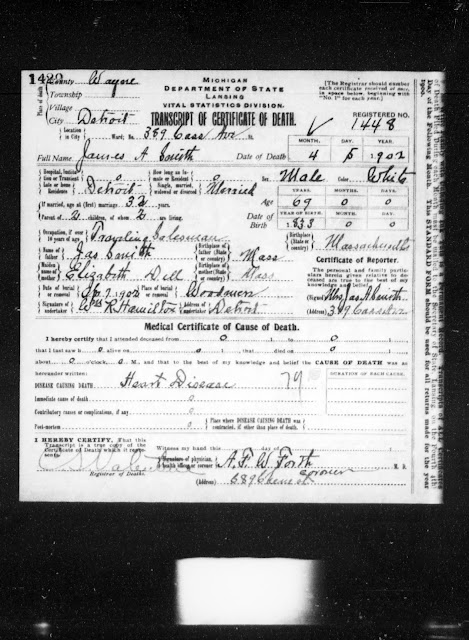 1429 County Wayne
MICHIGAN
Township
DEPARTMENT OF STATE
LANSING
Village
VITAL STATISTICS DIVISION.
City Detroit
TRANSCRIPT OF CERTIFICATE OF DEATH.
Place of death
[The Registrar should number each certificate received of same in space below, beginning with "No. 1" for each year.]
Location in City Ward; No. 389 Cass Ave St.
REGISTERED NO. 1448
Full Name James A Smith
Date of Death
MONTH. DAY. YEAR.
4 5 1902
Hospital, Institution or Transient 0
How long an Inmate or Resident 0
Sex Male Color White
Late or home Residence Detroit
Single, married, widowed or divorced Married
Age
YEARS. MONTHS. DAYS.
69 0 0
If married, age at (first) marriage 32 years
Parent of 2 children, of whom 2 are living.
Date of Birth
YEAR OF BIRTH. MONTH. DAY.
1833 0 0
Occupation, if over 10 years of age Traveling Salesman
Birthplace (State or country) Massachusetts
Name of father Jas Smith
Birthplace of father (State or country) Mass
Maiden name of mother Elizabeth Dell
Birthplace of mother (State or country) Mass
Certificate of Reporter.
The personal and family particulars herein given relative to deceased are true to the best of my knowledge and belief.
Date of burial or removal 1902
Place of burial or removal Woodmere
(Signed) Mrs Jas A Smith
Signature of undertaker Wm R Hamilton
Address Detroit
(Address) 389 Cass Ave
Medical Certificate of Cause of Death.
I hereby certify that I attended deceased from 0 to 0
that I last saw h 0 alive on 0, that h died on 0
about 0 o'clock, 0 M., and that to the best of my knowledge and belief the CAUSE OF DEATH was as
hereunder written:
DURATION OF EACH CAUSE.
DISEASE CAUSING DEATH Heart Disease 79
Immediate cause of death 0
Contributory causes or complications, if any 0
Post-mortem 0
Place where DISEASE CAUSING DEATH was contracted, if other than place of death.
I HEREBY CERTIFY, That this Transcript is a true copy of the Certificate of Death which it represents.
Witness my hand this day of
Signature of physician, health officer or coroner
Coroner M. D.
Registrar of Deaths.
(Address)